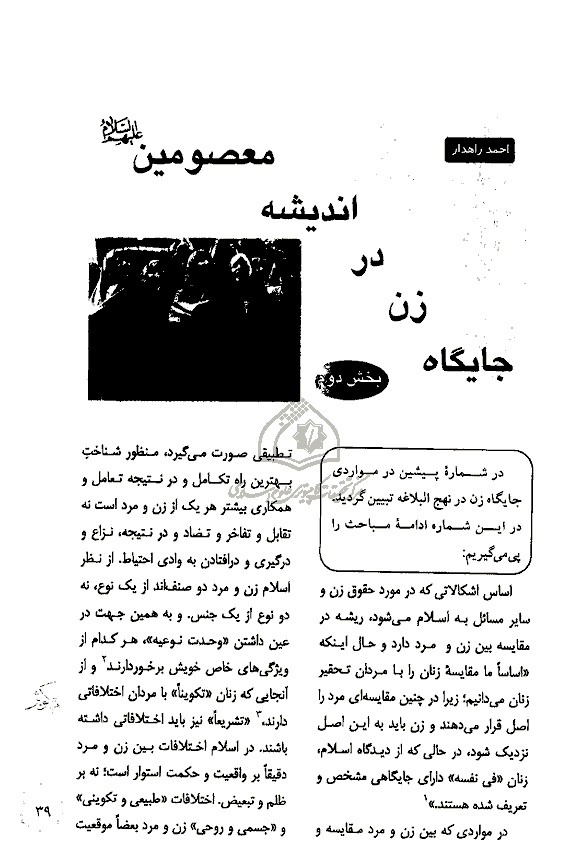 احمد راهدار
جایگاه
زن
در
اندیشه
معصومین علیهم‌السلام
بخش دوم
در شمارهٔ پیشین در مواردی
جایگاه زن در نهج البلاغه تبیین گردید.
در این شماره ادامهٔ مباحث را
پی‌می‌گیریم:
اساس اشکالاتی که در مورد حقوق زن و
سایر مسائل به اسلام می‌شود، ریشه در
مقایسه بین زن و مرد دارد و حال اینکه
«اساساً ما مقایسهٔ زنان را با مردان تحقیر
زنان می‌دانیم؛ زیرا در چنین مقایسه‌ای مرد را
اصل قرار می‌دهند و زن باید به این اصل
نزدیک شود، در حالی که از دیدگاه اسلام،
زنان «فی نفسه» دارای جایگاهی مشخص و
تعریف شده هستند.»۱
در مواردی که بین زن و مرد مقایسه و
تطبیقی صورت می‌گیرد، منظور شناختِ
بهترین راه تکامل و در نتیجه تعامل و
همکاری بیشتر هر یک از زن و مرد است نه
تقابل و تفاخر و تضاد و در نتیجه، نزاع و
درگیری و درافتادن به وادی احتیاط. از نظر
اسلام زن و مرد دو صنف‌اند از یک نوع، نه
دو نوع از یک جنس. و به همین جهت در
عین داشتن «وحدت نوعیه»، هر کدام از
ویژگی‌های خاص خویش برخوردارند۲ و از
آنجایی که زنان «تکویناً» با مردان اختلافاتی
دارند،۳ «تشریعاً» نیز باید اختلافاتی داشته
باشند. در اسلام اختلافات بین زن و مرد
دقیقاً بر واقعیت و حکمت استوار است؛ نه بر
ظلم و تبعیض. اختلافات «طبیعی و تکوینی»
و «جسمی و روحی» زن و مرد بعضاً موقعیت
۳۹